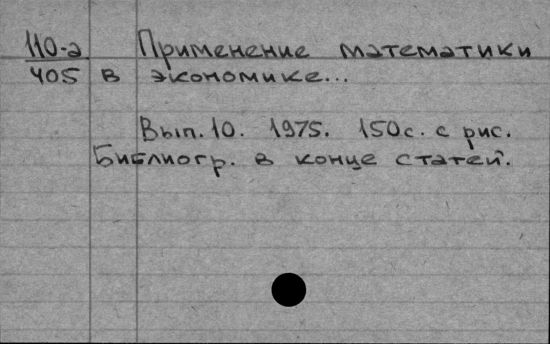 110-а Применение математики
405 в экономике...
Вып. 10. 1975. 150с. с рис.
Библиогр. в конце статей.